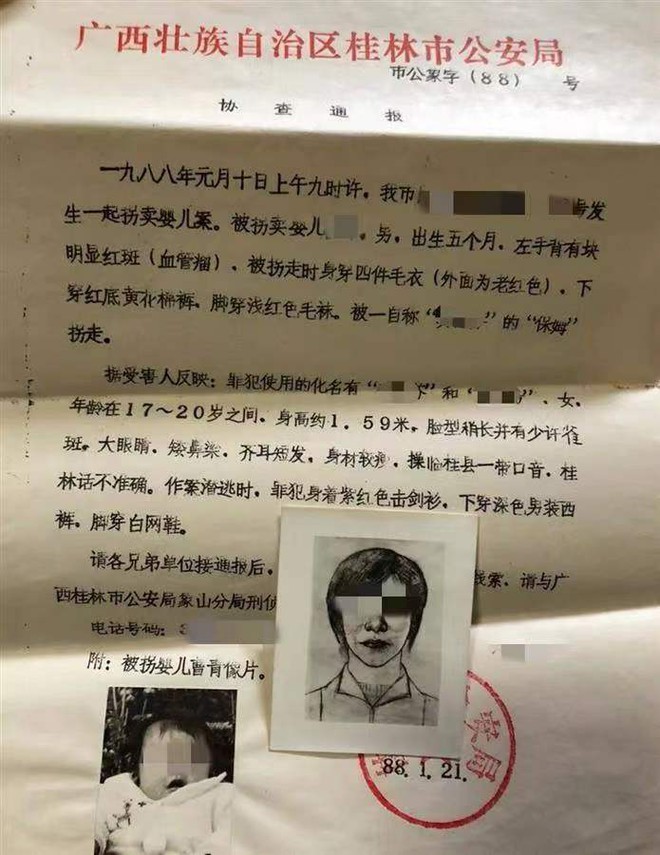 广西壮族自治区桂林市公安局
市公象字（88） 号
协查通报
一九八八年元月十日上午九时许，我市 号发
生一起拐卖婴儿案。被拐卖婴儿 ，男，出生五个月，左手背有块
明显红斑（血管瘤），被拐走时身穿四件毛衣（外面为老红色），下
穿红底黄花棉裤，脚穿浅红色毛袜。被一自称“ ”的“保姆”
拐走。
据受害人反映：罪犯使用的化名有“ ”和“ ”，女，
年龄在17～20岁之间，身高约1．59米，脸型稍长并有少许雀
斑。大眼睛，矮鼻梁，齐耳短发，身材较瘦，操临桂县一带口音，桂
林话不准确。作案潜逃时，罪犯身着紫红色击剑衫，下穿深色男装西
裤，脚穿白网鞋。
请各兄弟单位接通报后， 线索，请与广
西桂林市公安局象山分局刑侦
电话号码：
附：被拐婴儿 像片。
88.1.21.
局